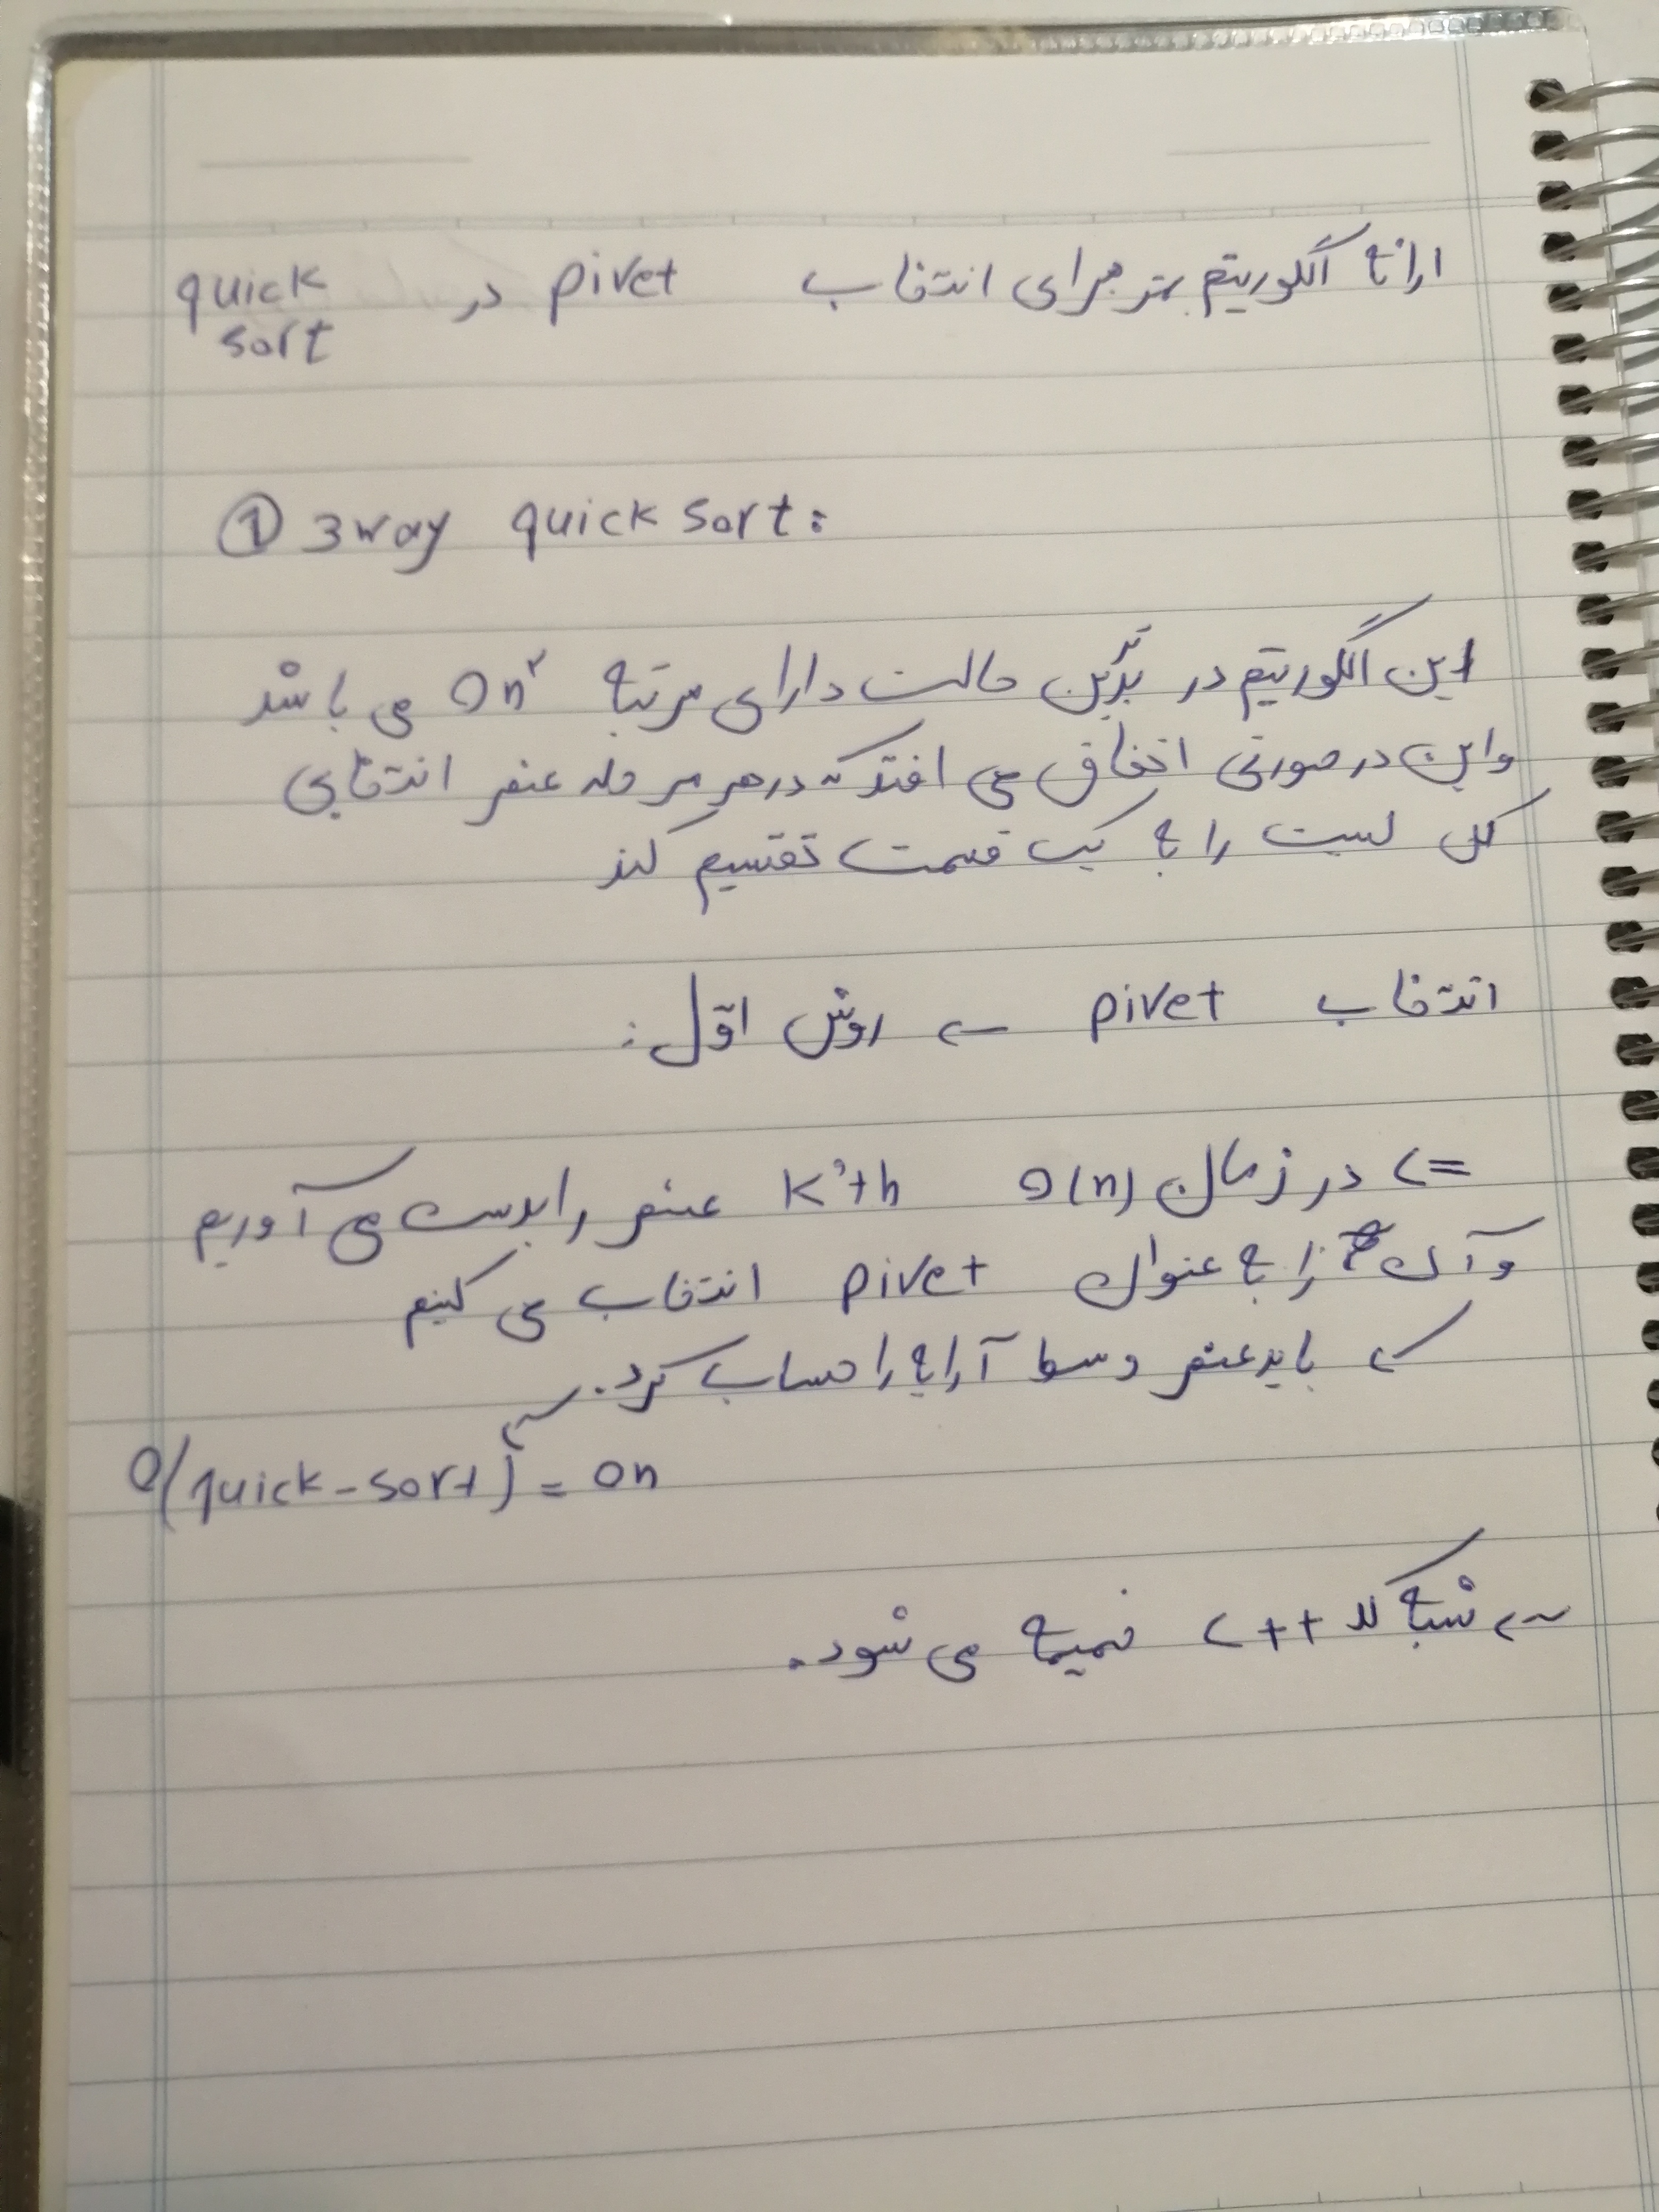 ارائه الگوریتم بهتر برای انتخاب pivet در quick
sort
① 3way quick sort:
این الگوریتم در بدترین حالت دارای مرتبه On² می باشد
و این در صورتی اتفاق می افتد که در هر مرحله عنصر انتخابی
کل لیست را به یک قسمت تقسیم کند
انتخاب pivet ← روش اوّل:
=> در زمان O(n) k'th عنصر را بدست می آوریم
و آن را به عنوان pivet انتخاب می کنیم
← باید عنصر وسط آرایه را حساب کرد.
O(quick-sort) = On
← شبه کد c++ ضمیمه می شود.